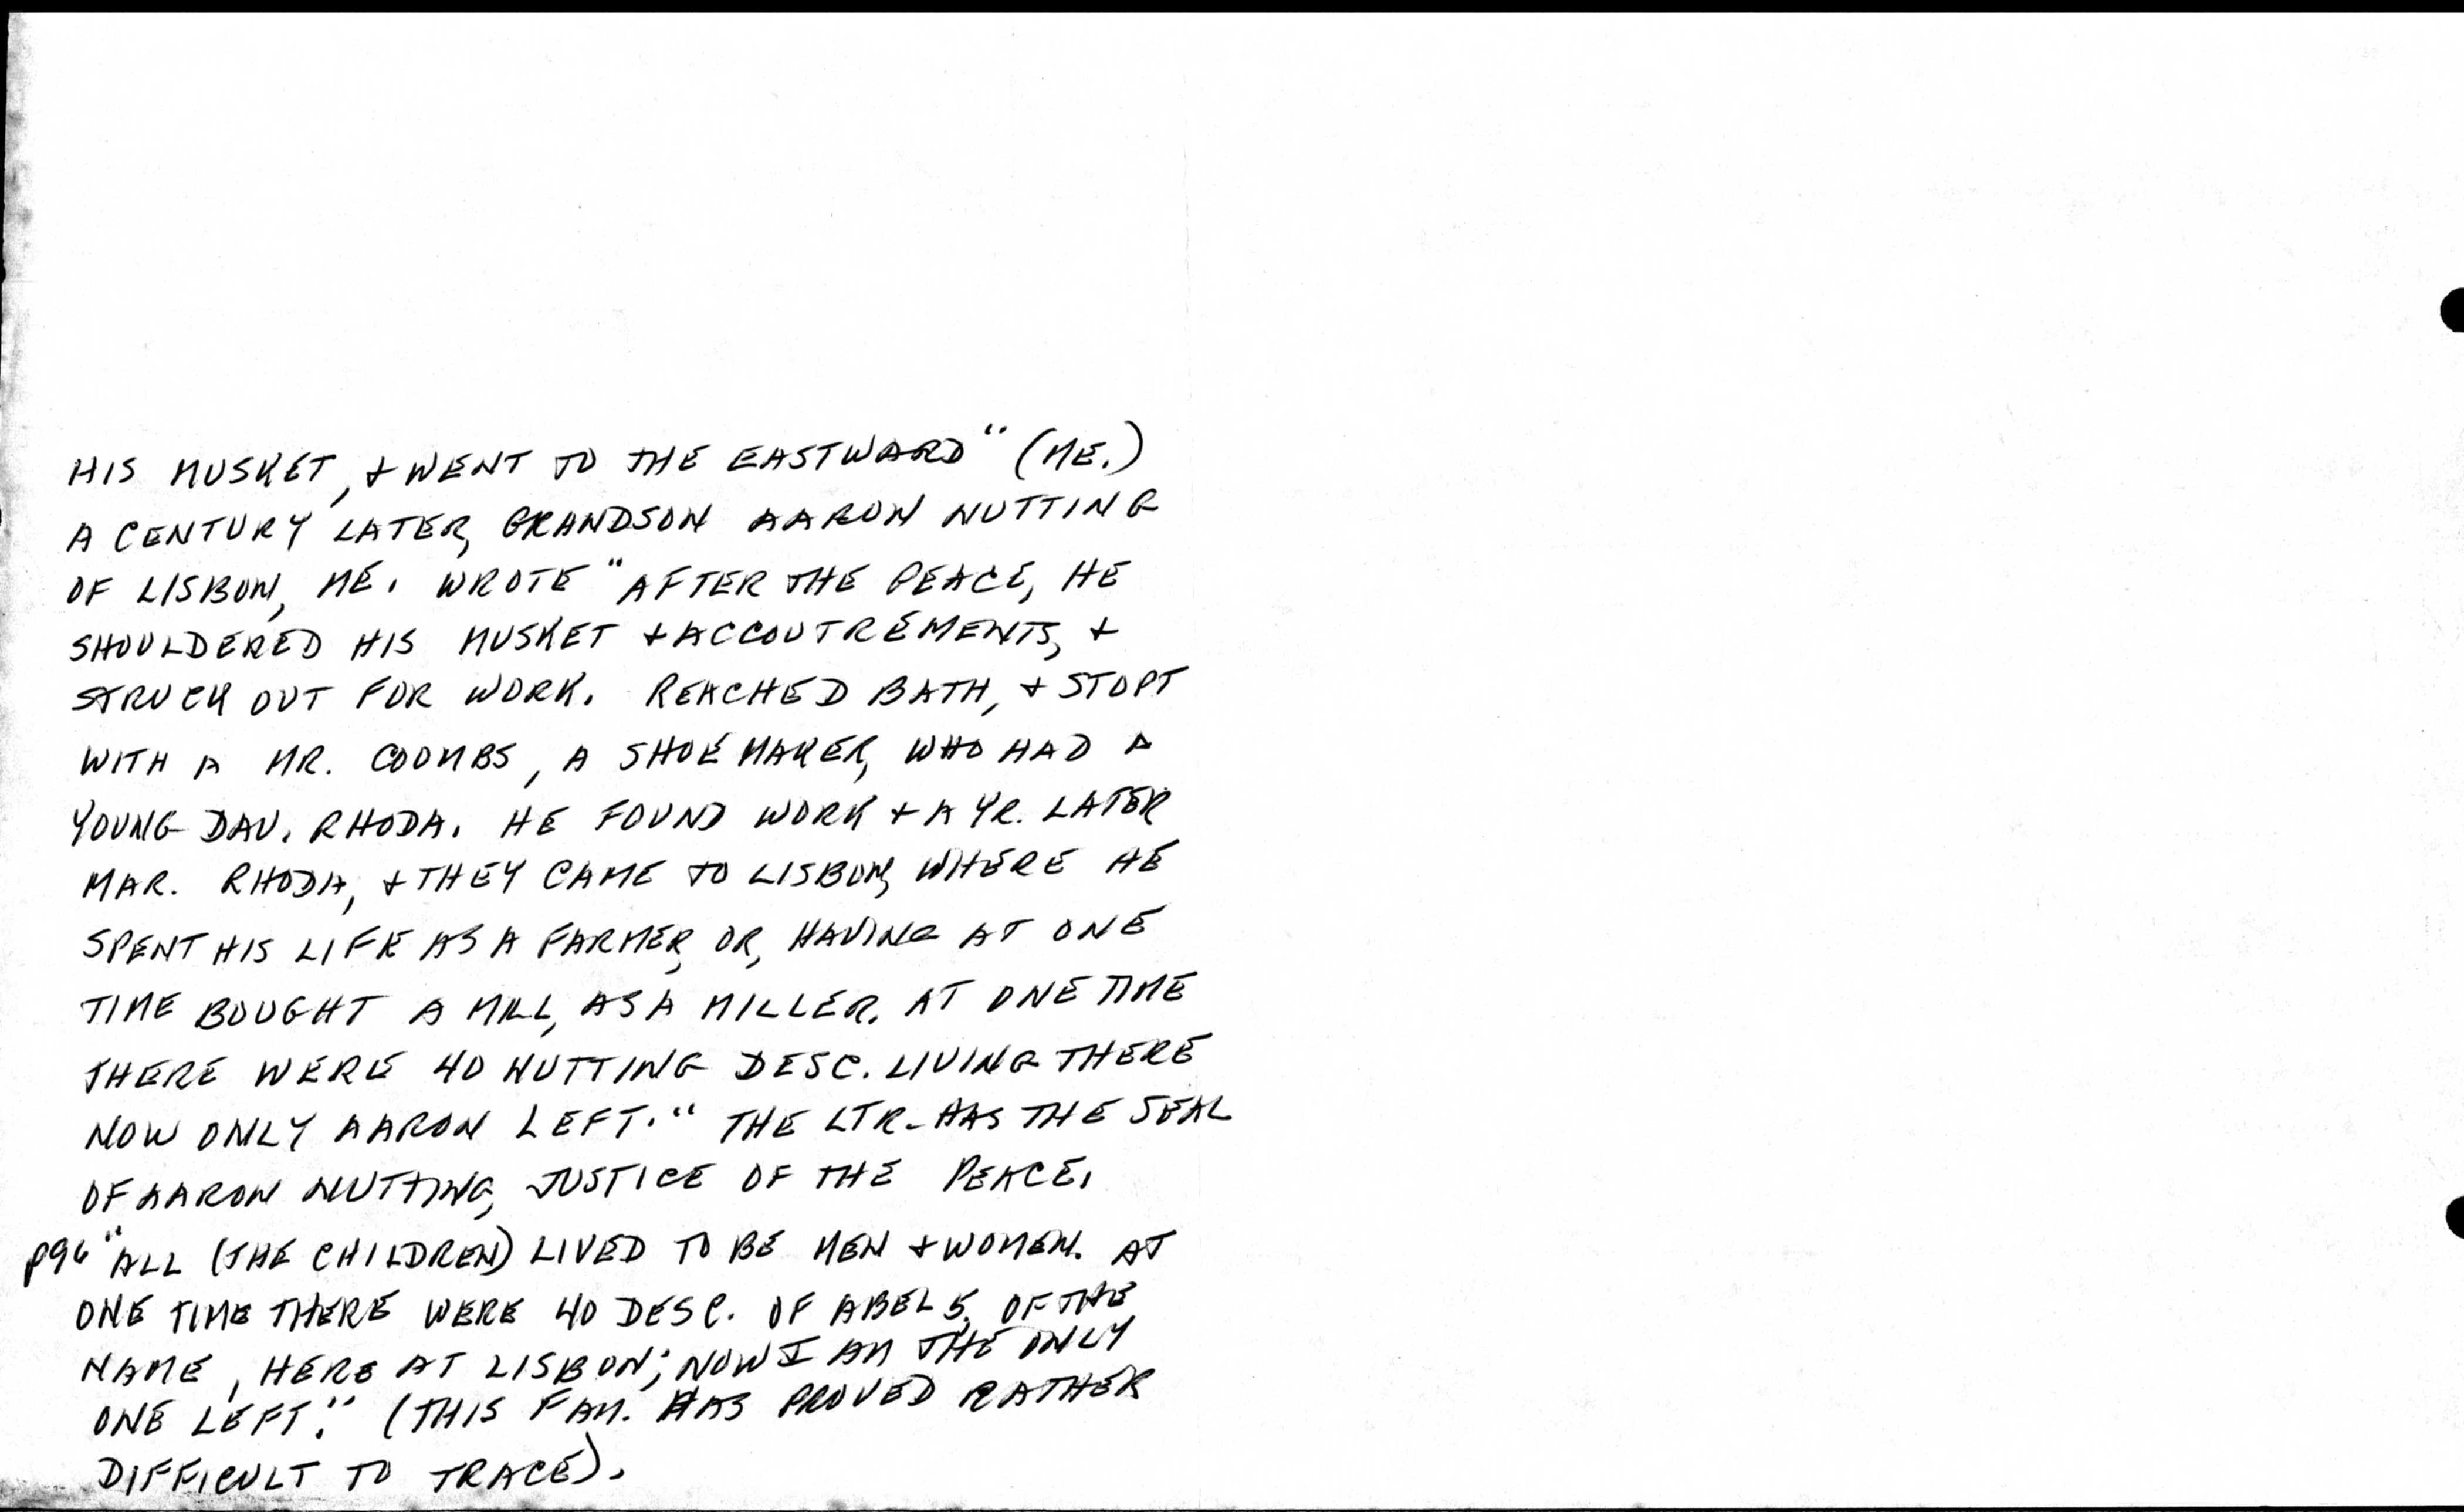 HIS MUSKET, + WENT TO THE EASTWARD" (ME.)
A CENTURY LATER, GRANDSON AARON NUTTING
OF LISBON, ME. WROTE "AFTER THE PEACE, HE
SHOULDERED HIS MUSKET + ACCOUTREMENTS, +
STRUCK OUT FOR WORK. REACHED BATH, + STOPT
WITH A MR. COOMBS, A SHOEMAKER, WHO HAD A
YOUNG DAU. RHODA. HE FOUND WORK + A YR. LATER
MAR. RHODA, + THEY CAME TO LISBON, WHERE HE
SPENT HIS LIFE AS A FARMER, OR, HAVING AT ONE
TIME BOUGHT A MILL, AS A MILLER. AT ONE TIME
THERE WERE 40 NUTTING DESC. LIVING THERE
NOW ONLY AARON LEFT." THE LTR. HAS THE SEAL
OF AARON NUTTING, JUSTICE OF THE PEACE.
p96 "ALL (THE CHILDREN) LIVED TO BE MEN + WOMEN. AT
ONE TIME THERE WERE 40 DESC. OF ABEL 5, OF THE
NAME, HERE AT LISBON; NOW I AM THE ONLY
ONE LEFT." (THIS FAM. HAS PROVED RATHER
DIFFICULT TO TRACE).